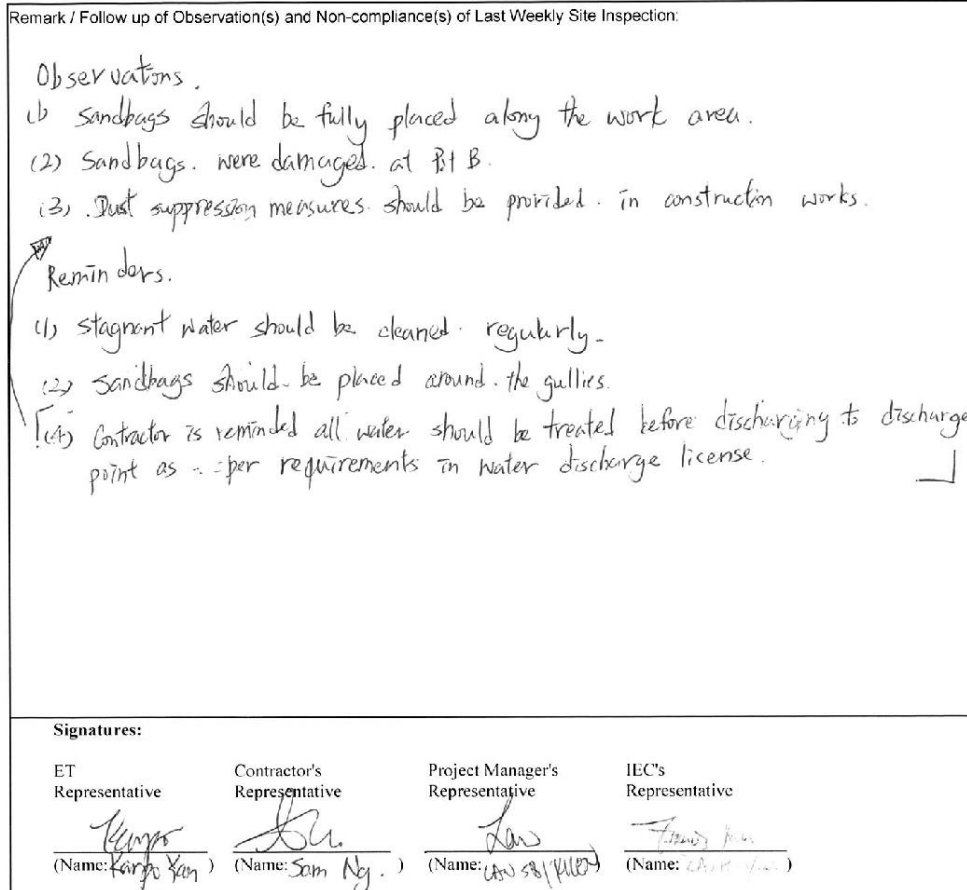 Remark / Follow up of Observation(s) and Non-compliance(s) of Last Weekly Site Inspection:
Observations.
(1) Sandbags should be fully placed along the work area.
(2) Sandbags were damaged at B.
(3) Dust suppression measures should be provided in construction works.
Reminders.
(1) Stagnant water should be cleaned regularly.
(2) Sandbags should be placed around the gullies.
[(4) Contractor is reminded all water should be treated before discharging to discharge
point as per requirements in water discharge license. ]
Signatures:
ET Representative
Contractor's Representative
Project Manager's Representative
IEC's Representative
(Name: Karpo Yan )
(Name: Sam Ng. )
(Name: )
(Name: )